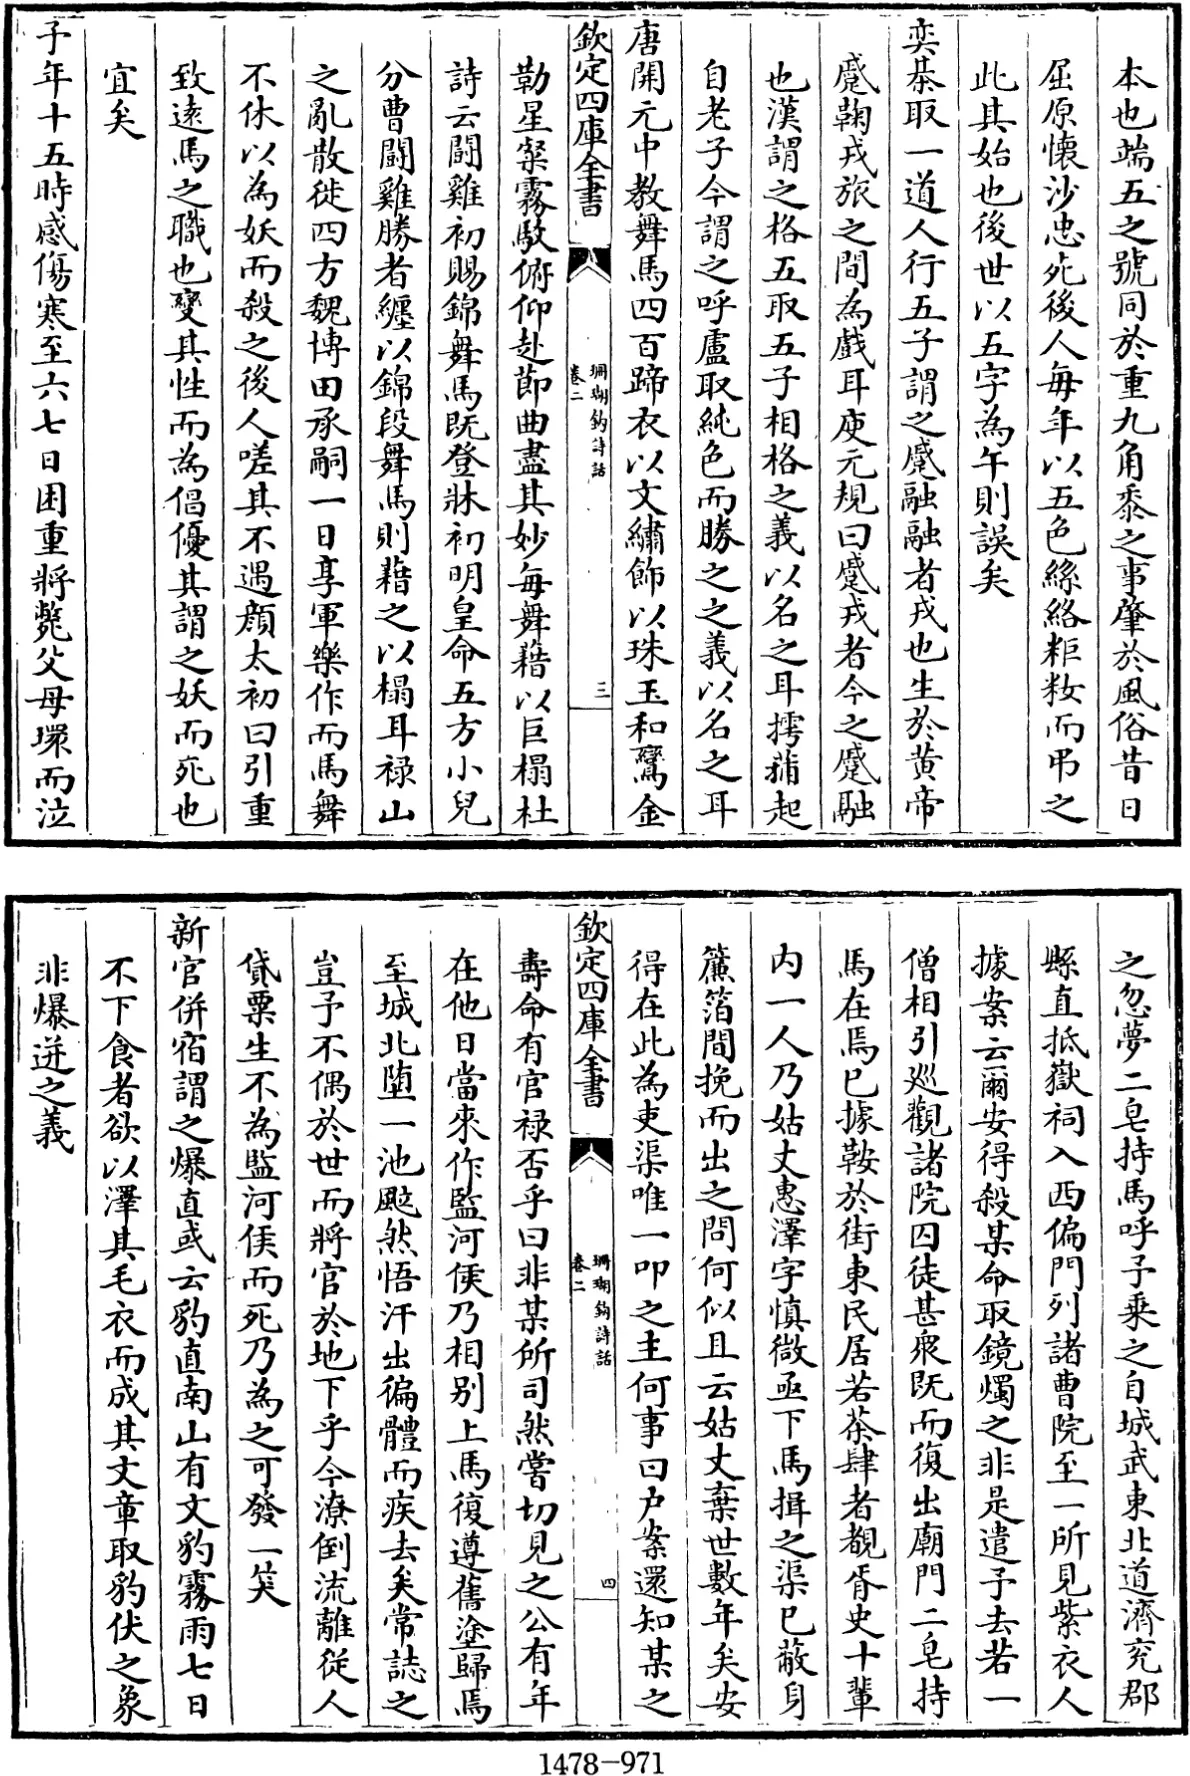 本也端五之號同於重九角黍之事肇於風俗昔日
屈原懷沙忠死後人每年以五色絲絡粔籹而弔之
此其始也後世以五字為午則誤矣
奕棊取一道人行五子謂之蹙融融者戎也生於黄帝
蹙鞠戎旅之間為戲耳庾元規曰蹙戎者今之蹙融
也漢謂之格五取五子相格之義以名之耳摴蒱起
自老子今謂之呼盧取純色而勝之之義以名之耳
唐開元中教舞馬四百蹄衣以文繡飾以珠玉和鸞金
欽定四庫全書
珊瑚鈎詩話
卷二
三
勒星粲霧駮俯仰赴節曲盡其妙每舞藉以巨榻杜
詩云鬭雞初賜錦舞馬既登牀初明皇命五方小兒
分曹鬭雞勝者纒以錦段舞馬則藉之以榻耳禄山
之亂散徙四方魏博田承嗣一日享軍樂作而馬舞
不休以為妖而殺之後人嗟其不遇顔太初曰引重
致遠馬之職也變其性而為倡優其謂之妖而死也
宜矣
予年十五時感傷寒至六七日困重將斃父母環而泣
之忽夢二皂持馬呼予乗之自城武東北道濟兖郡
縣直抵嶽祠入西偏門列諸曹院至一所見紫衣人
據案云爾安得殺某命取鏡燭之非是遣予去若一
僧相引廵觀諸院囚徒甚衆既而復出廟門二皂持
馬在焉已據鞍於街東民居若茶肆者覩胥史十輩
内一人乃姑丈惠澤字慎微亟下馬揖之渠已蔽身
簾箔間挽而出之問何似且云姑丈棄世數年矣安
得在此為吏渠唯一叩之主何事曰户案還知某之
欽定四庫全書
珊瑚鈎詩話
卷二
四
壽命有官禄否乎曰非某所司然嘗切見之公有年
在他日當來作監河侯乃相别上馬復遵舊塗歸焉
至城北墮一池颭然悟汗出徧體而疾去矣常誌之
豈予不偶於世而將官於地下乎今潦倒流離從人
貸粟生不為監河侯而死乃為之可發一笑
新官併宿謂之爆直或云豹直南山有文豹霧雨七日
不下食者欲以澤其毛衣而成其文章取豹伏之象
非爆迸之義
1478-971